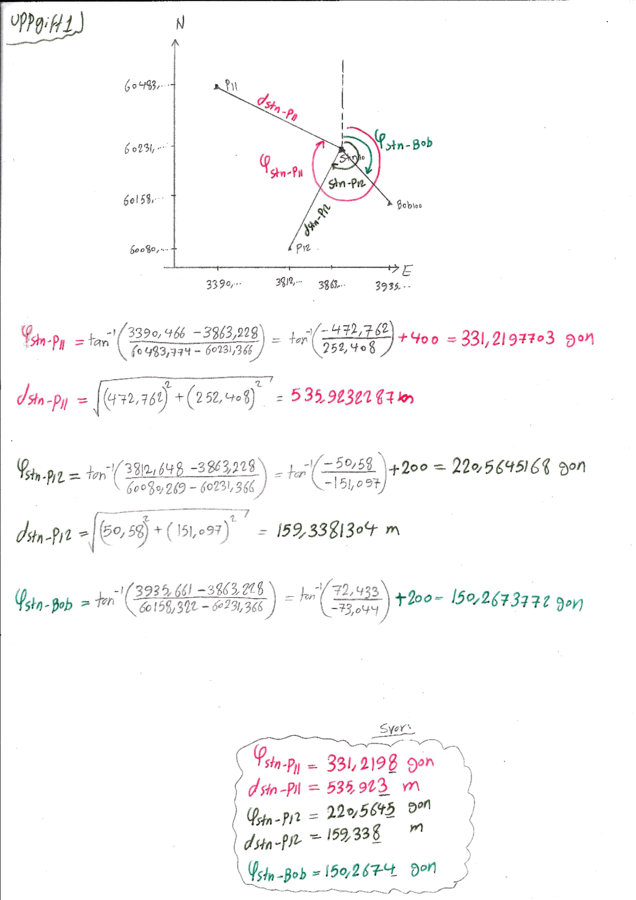 uppgift 1)
N
60483,...
P11
dstn-P11
60231,...
φstn-Bob
φstn-P11
Stn110
stn-P12
60158,...
dstn-P12
Bob100
60080,...
P12
E
3390,... 3812,... 3863,... 3935...
φstn-P11 = tan⁻¹(3390,466 - 3863,228 / 60483,774 - 60231,366) = tan⁻¹(-472,762 / 252,408) + 400 = 331,2197703 gon
dstn-P11 = √(472,762)² + (252,408)² = 535,9232287 m
φstn-P12 = tan⁻¹(3812,648 - 3863,228 / 60080,269 - 60231,366) = tan⁻¹(-50,58 / -151,097) + 200 = 220,5645168 gon
dstn-P12 = √(50,58)² + (151,097)² = 159,3381304 m
φstn-Bob = tan⁻¹(3935,661 - 3863,228 / 60158,322 - 60231,366) = tan⁻¹(72,433 / -73,044) + 200 = 150,2673772 gon
Svar:
φstn-P11 = 331,2198 gon
dstn-P11 = 535,923 m
φstn-P12 = 220,5645 gon
dstn-P12 = 159,338 m
φstn-Bob = 150,2674 gon